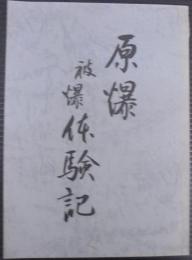 原爆
被爆体験記